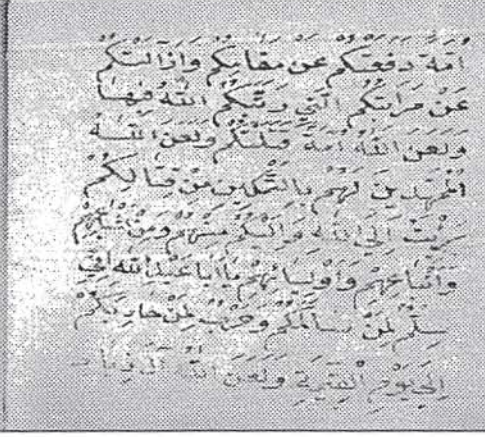 اُمَّةً دَفَعَتْكُمْ عَنْ مَقَامِكُمْ وَاَزَالَتْكُمْ
عَنْ مَرَاتِبِكُمُ الَّتِي رَتَّبَكُمُ اللهُ فِيهَا
وَلَعَنَ اللهُ اُمَّةً قَتَلَتْكُمْ وَلَعَنَ اللهُ
الْمُمَهِّدِينَ لَهُمْ بِالتَّمْكِينِ مِنْ قِتَالِكُمْ
بَرِئْتُ اِلَى اللهِ وَاِلَيْكُمْ مِنْهُمْ وَمِنْ اَشْيَاعِهِمْ
وَاَتْبَاعِهِمْ وَاَوْلِيَائِهِمْ يَا اَبَا عَبْدِ اللهِ اِنِّي
سِلْمٌ لِمَنْ سَالَمَكُمْ وَحَرْبٌ لِمَنْ حَارَبَكُمْ
اِلَى يَوْمِ الْقِيمَةِ وَلَعَنَ اللهُ آلَ زِيَاد